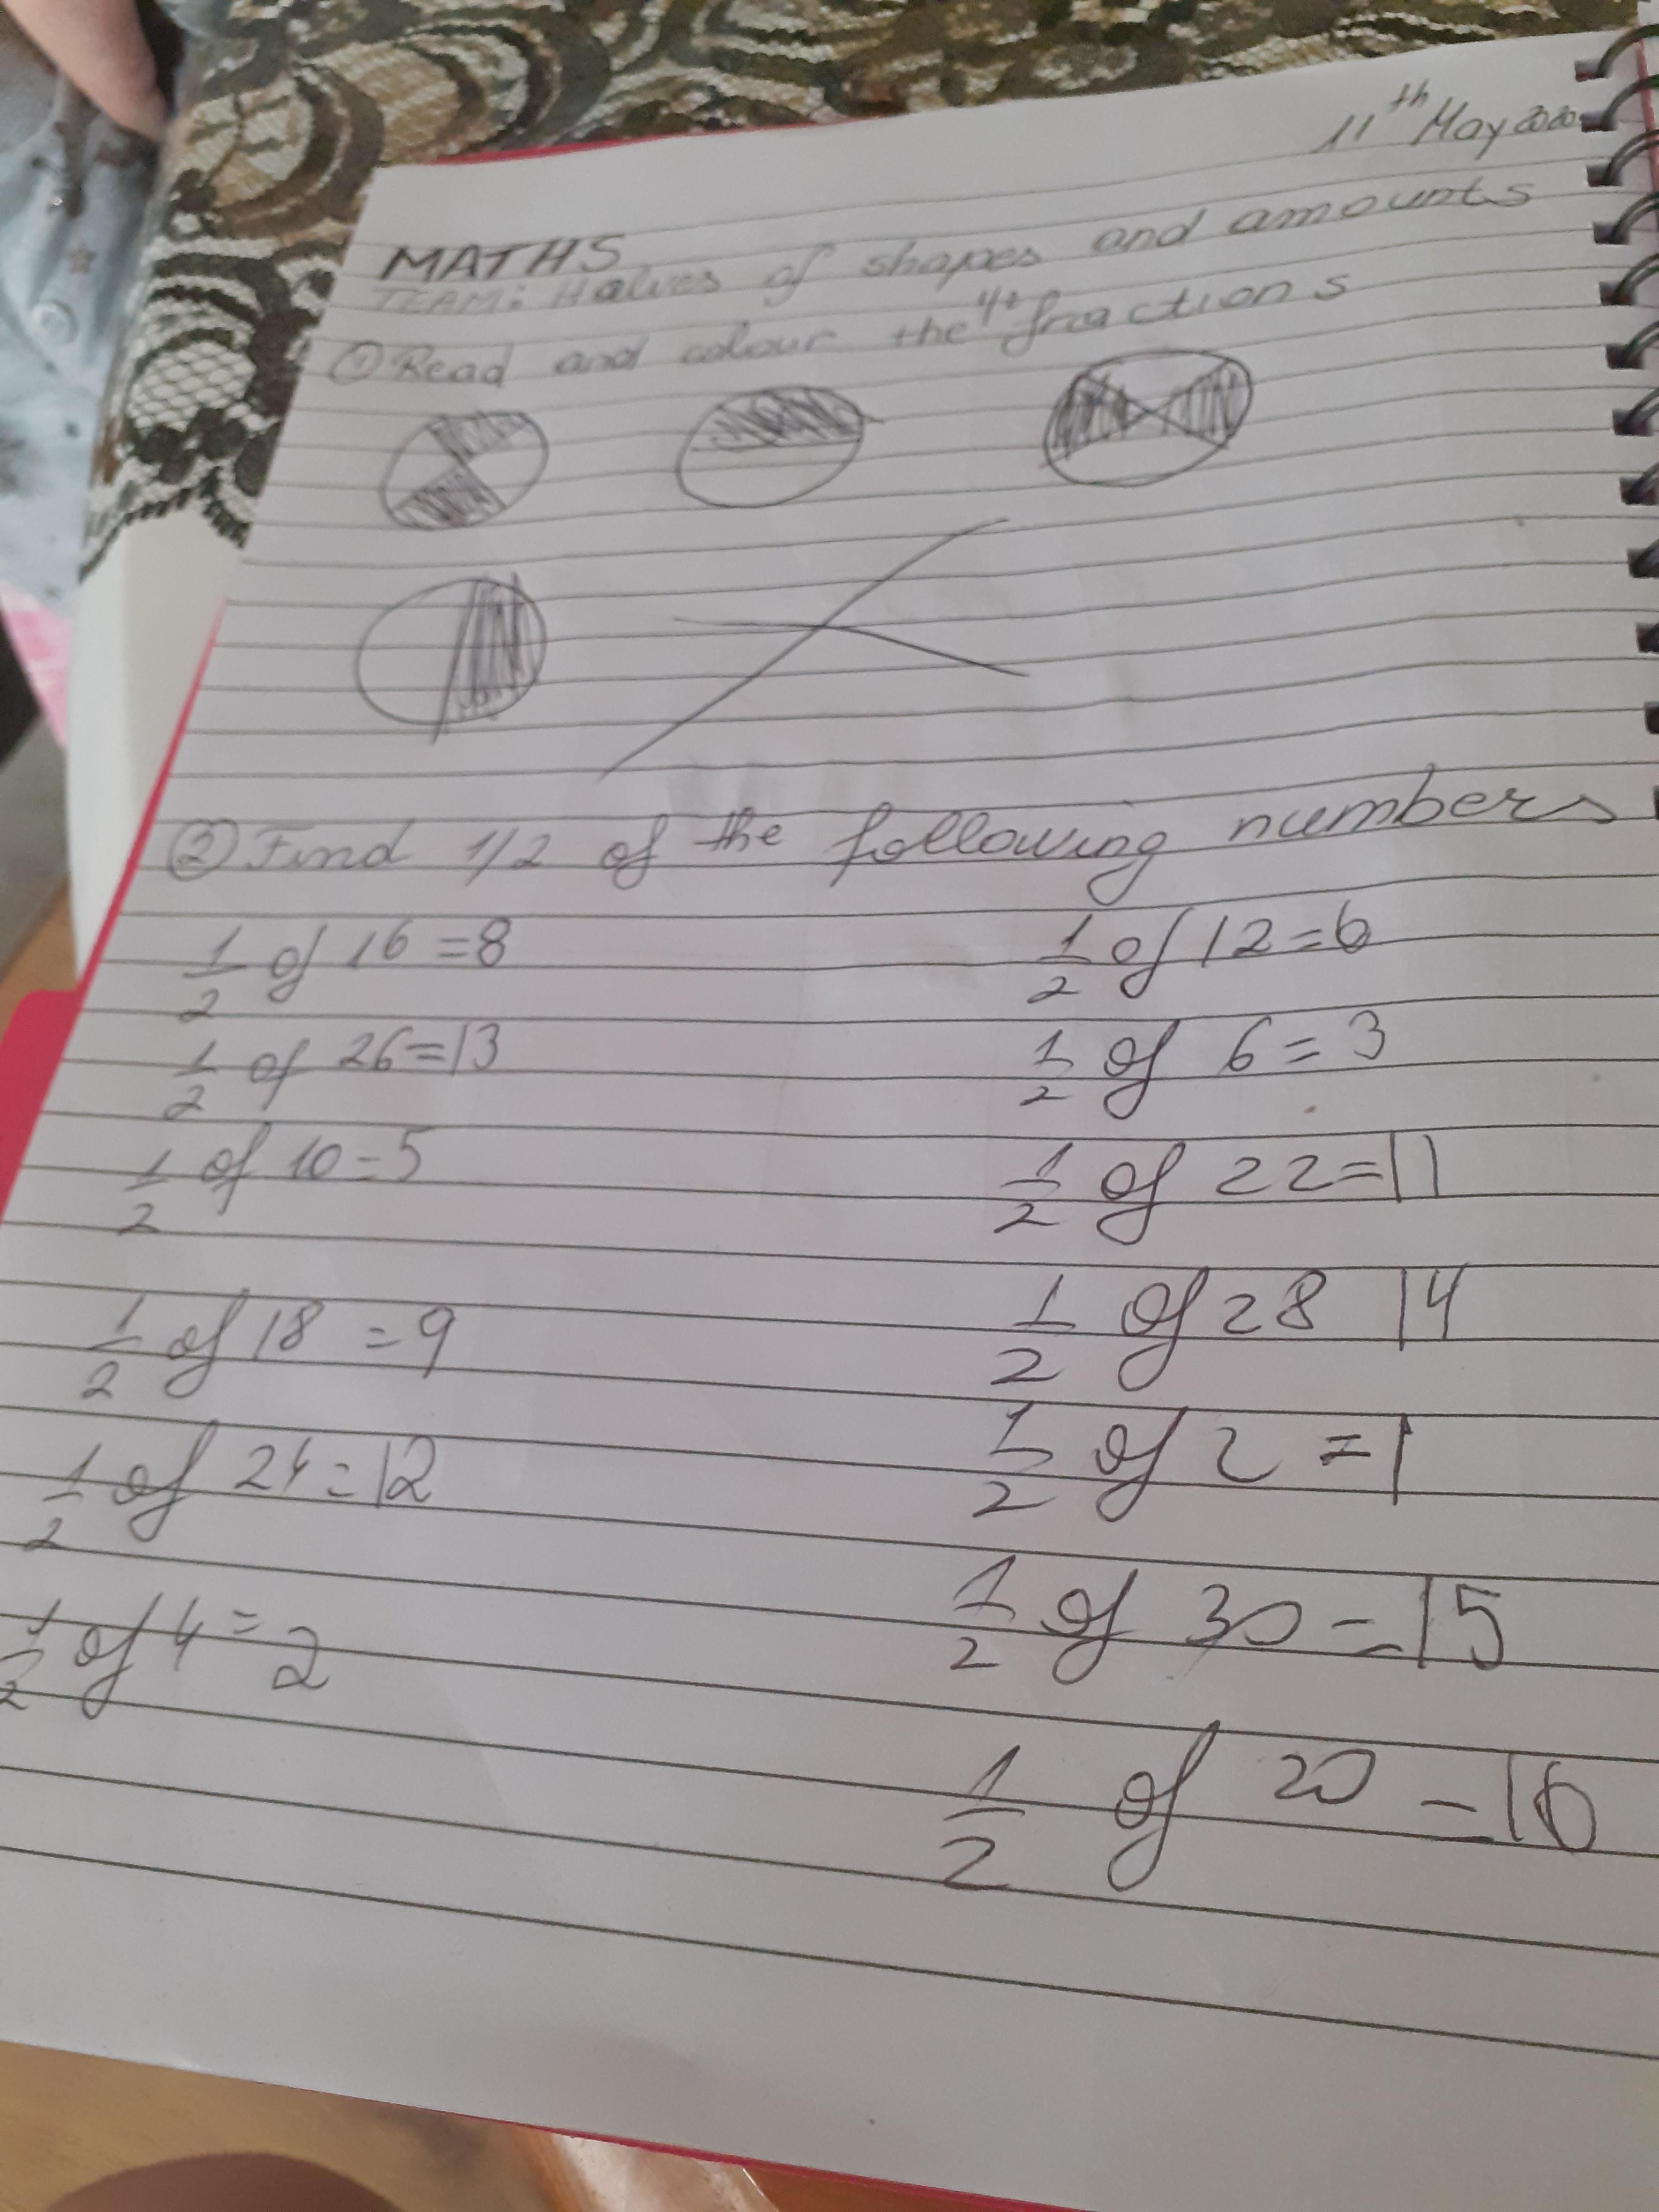 11th May 2020
MATHS
TEAM: Halves of shapes and amounts
① Read and colour the 4+ fractions
② Find 1/2 of the following numbers
1/2 of 16 = 8 1/2 of 12 = 6
1/2 of 26 = 13 1/2 of 6 = 3
1/2 of 10 = 5 1/2 of 22 = 11
1/2 of 18 = 9 1/2 of 28 14
1/2 of 24 = 12 1/2 of 2 = 1
1/2 of 4 = 2 1/2 of 30 = 15
1/2 of 20 = 10